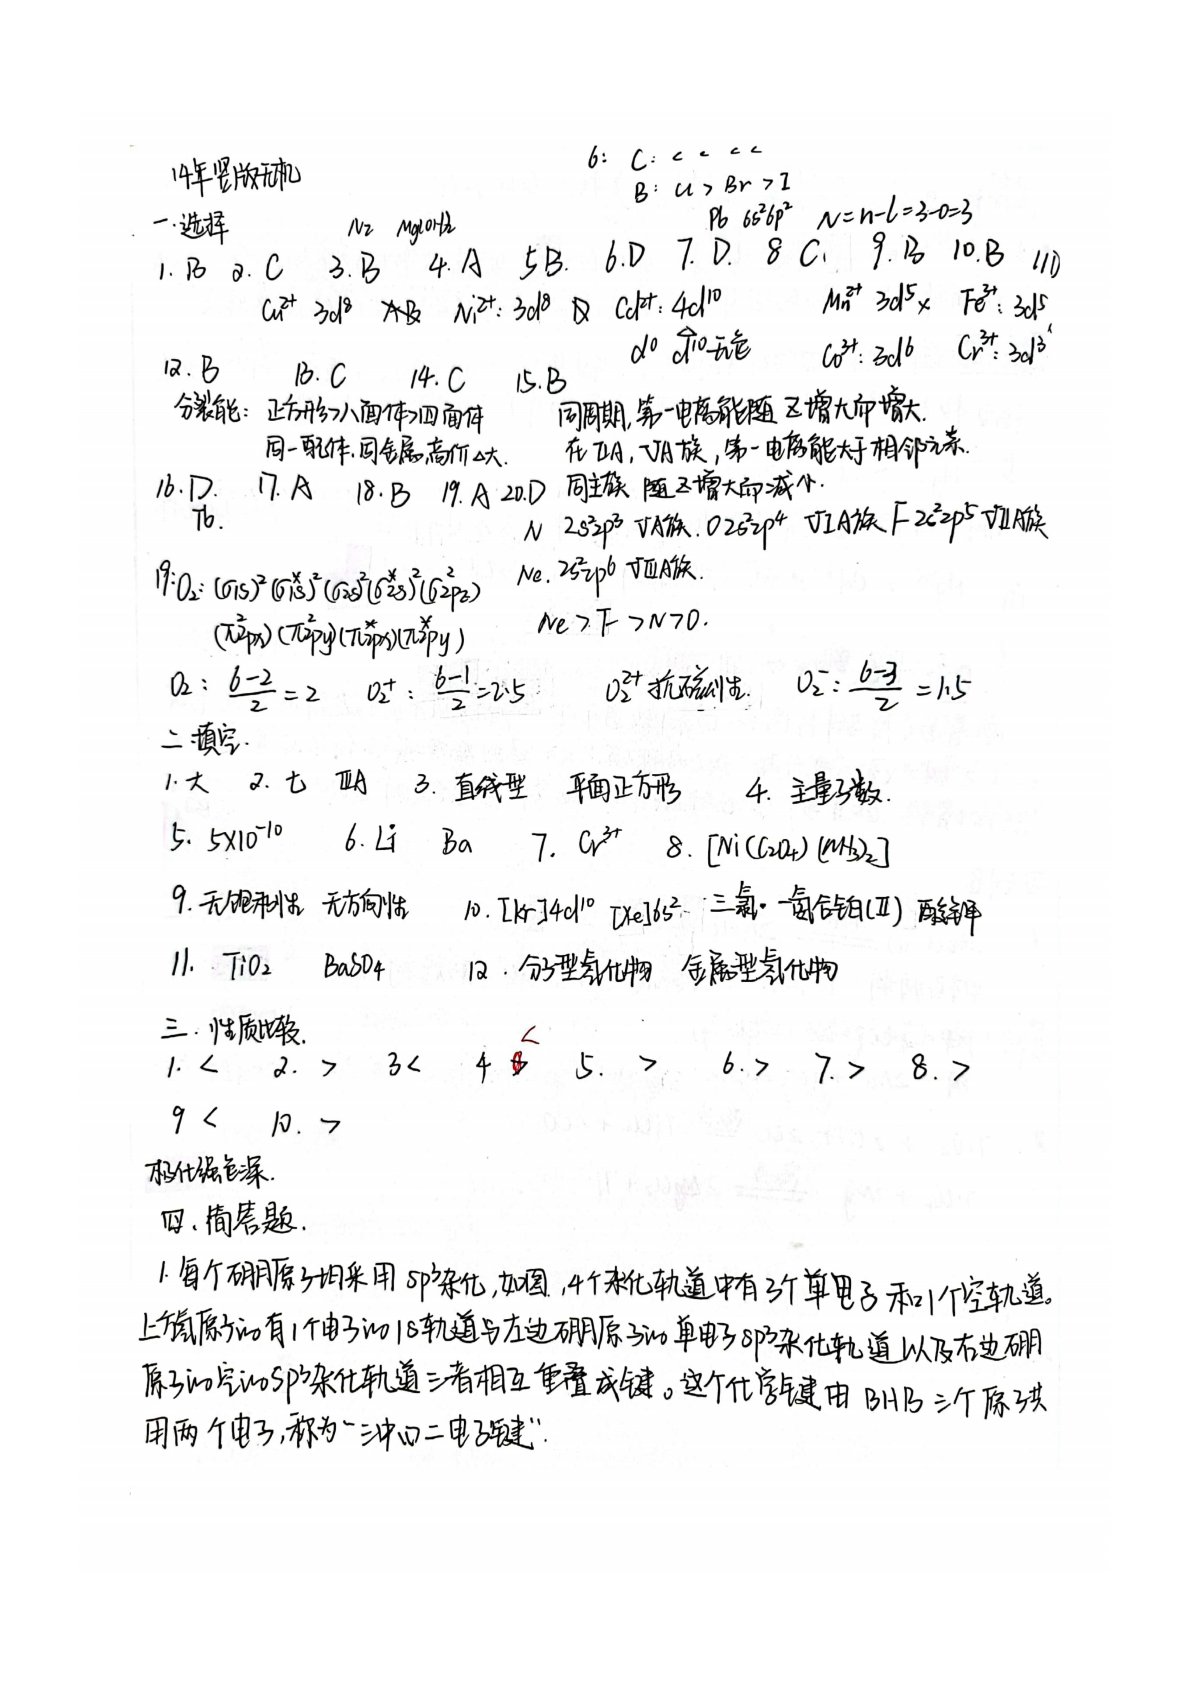 14年竖版无机
6: C: < < < <
B: Cl > Br > I
Pb 6s²6p² N=n-l=3-0=3
一.选择 N₂ Mg(OH)₂
1. B 2. C 3. B 4. A 5B. 6.D 7. D. 8 C. 9. B 10.B 11D
Cu²⁺ 3d⁸ Ni²⁺: 3d⁸ Cd²⁺: 4d¹⁰ Mn²⁺ 3d⁵ x Fe³⁺: 3d⁵
d⁰ d¹⁰无色 Co³⁺: 3d⁶ Cr³⁺: 3d³
12. B 13. C 14. C 15.B
分裂能: 正方形>八面体>四面体
同一配体.同金属.高价△大.
同周期,第一电离能随Z增大而增大.
在ⅡA,ⅤA族,第一电离能大于相邻元素.
同主族 随Z增大而减小.
16.D. 17. A 18. B 19. A 20.D
Tb.
N 2s²2p³ ⅤA族. O 2s²2p⁴ ⅥA族 F 2s²2p⁵ ⅦA族
Ne. 2s²2p⁶ ⅧA族.
Ne > F > N > O.
19: O₂: (σ1s)²(σ*1s)²(σ2s)²(σ*2s)²(σ2pz)²
(π2px)²(π2py)²(π*2px)(π*2py)
O₂: (6-2)/2 = 2 O₂⁺: (6-1)/2 = 2.5 O₂²⁺ 抗磁性. O₂⁻: (6-3)/2 = 1.5
二.填空.
1.大 2. 七 ⅢA 3. 直线型 平面正方形 4. 主量子数.
5. 5×10⁻¹⁰ 6. Li Ba 7. Cr³⁺ 8. [Ni(C₂O₄)(NH₃)₂]
9. 无饱和性 无方向性 10. [Kr]4d¹⁰ [Xe]6s² 三氯·一氨合铂(Ⅱ)酸钾
11. TiO₂ BaSO₄ 12. 分子型氢化物 金属型氢化物
三.性质比较.
1. < 2. > 3 < 4 < 5. > 6. > 7. > 8. >
9 < 10. >
极化强色深.
四、简答题.
1. 每个硼原子均采用sp³杂化,如图,4个杂化轨道中有3个单电子和1个空轨道。
上方氢原子的有1个电子的1s轨道与左边硼原子的单电子sp³杂化轨道以及右边硼
原子的空的sp³杂化轨道三者相互重叠成键。这个化学键由BHB三个原子共
用两个电子,称为“三中心二电子键”.